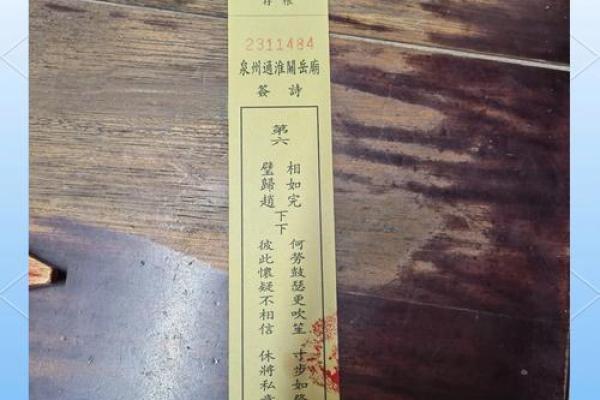 存根
2311484
泉州通淮關岳廟
簽詩
第六
相如完
璧歸趙
下下
何勞鼓瑟更吹笙 寸步如
彼此懷疑不相信 休將私